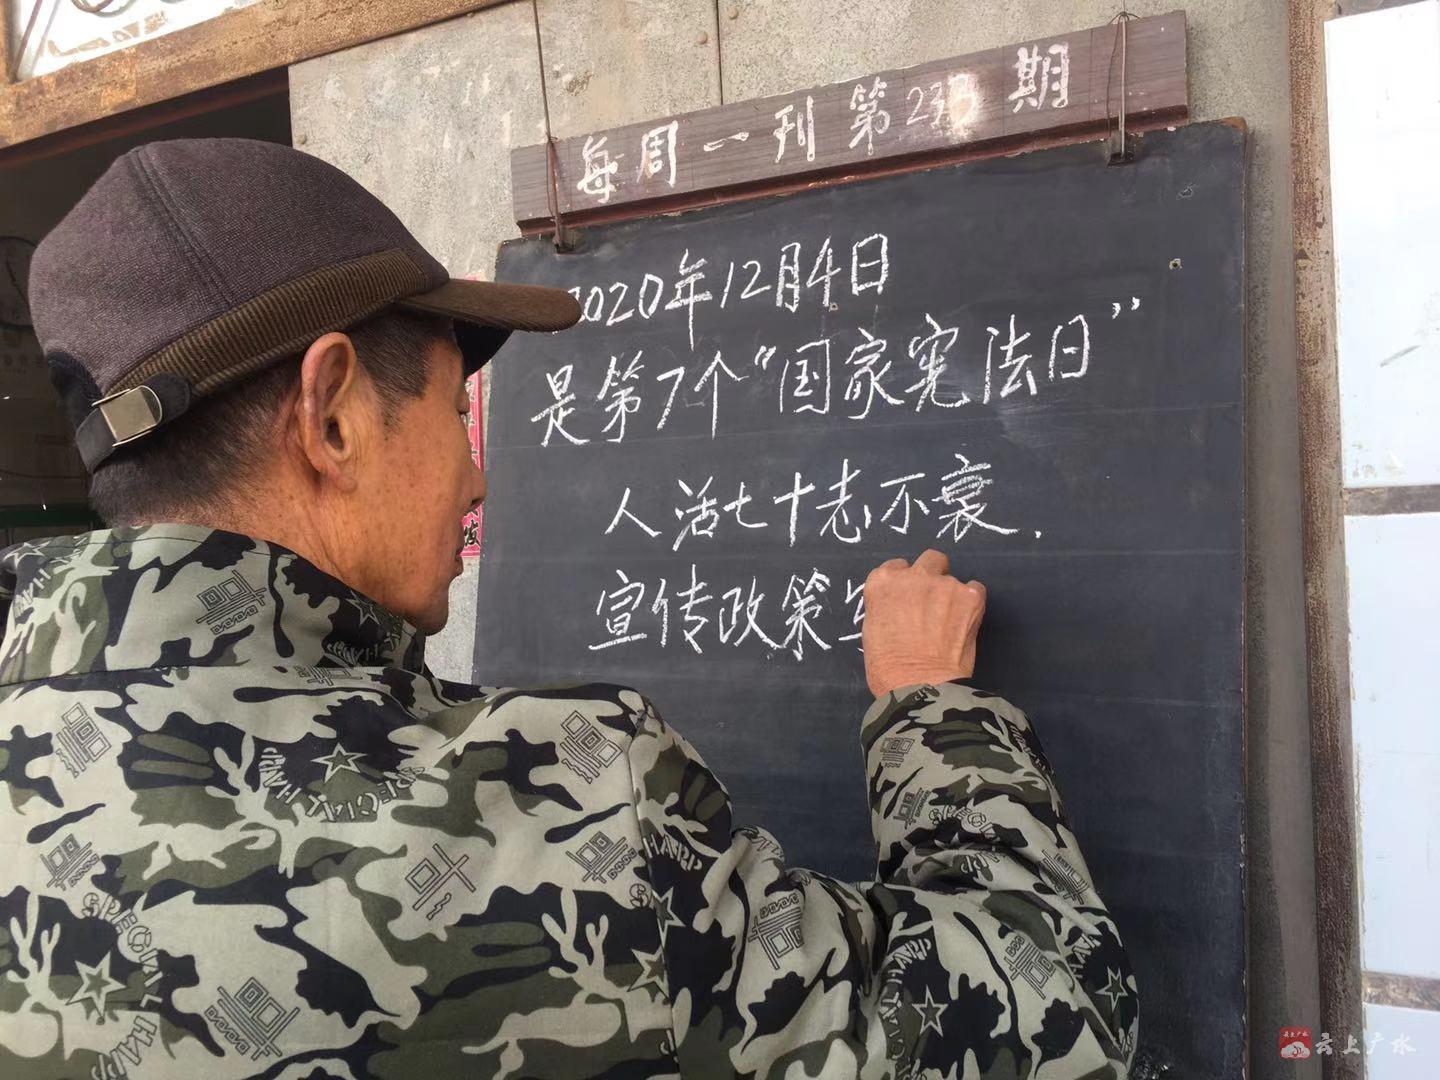 每周一刊第233期
2020年12月4日
是第7个“国家宪法日”
人活七十志不衰.
宣传政策
SPECIAL HARP
云上广水